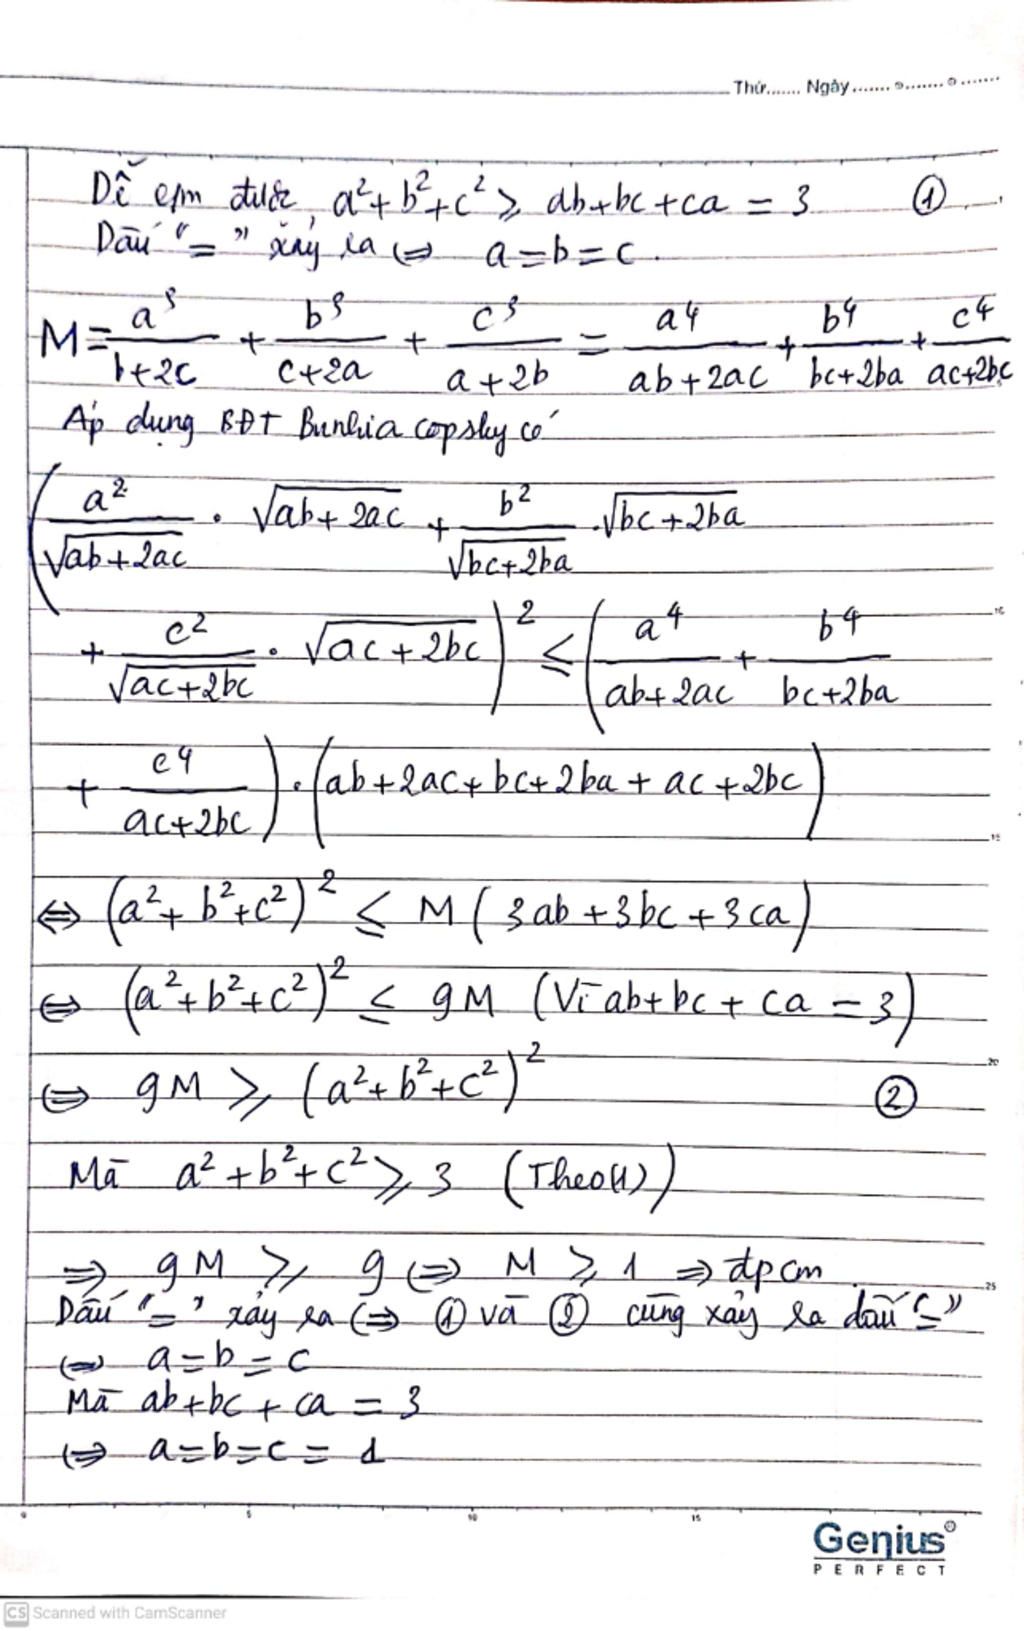 Thứ....... Ngày....... 
Dễ cm được, a²+b²+c² ≥ ab+bc+ca = 3 ①
Dấu "=" xảy ra ⇔ a=b=c.
M = a³/(b+2c) + b³/(c+2a) + c³/(a+2b) = a⁴/(ab+2ac) + b⁴/(bc+2ba) + c⁴/(ac+2bc)
Áp dụng BĐT Bunhia copsky có
(a²/√(ab+2ac) . √(ab+2ac) + b²/√(bc+2ba) . √(bc+2ba)
+ c²/√(ac+2bc) . √(ac+2bc))² ≤ (a⁴/(ab+2ac) + b⁴/(bc+2ba)
+ c⁴/(ac+2bc)) . (ab+2ac+bc+2ba+ac+2bc)
⇔ (a²+b²+c²)² ≤ M(3ab+3bc+3ca)
⇔ (a²+b²+c²)² ≤ 9M (Vì ab+bc+ca=3)
⇔ 9M ≥ (a²+b²+c²)² ②
Mà a²+b²+c² ≥ 3 (Theo(1))
⇒ 9M ≥ 9 ⇔ M ≥ 1 ⇒ đpcm.
Dấu "=" xảy ra ⇔ ① và ② cùng xảy ra dấu "="
⇔ a=b=c
Mà ab+bc+ca=3
⇔ a=b=c=1
0 5 10 15
Genius
PERFECT
CS Scanned with CamScanner